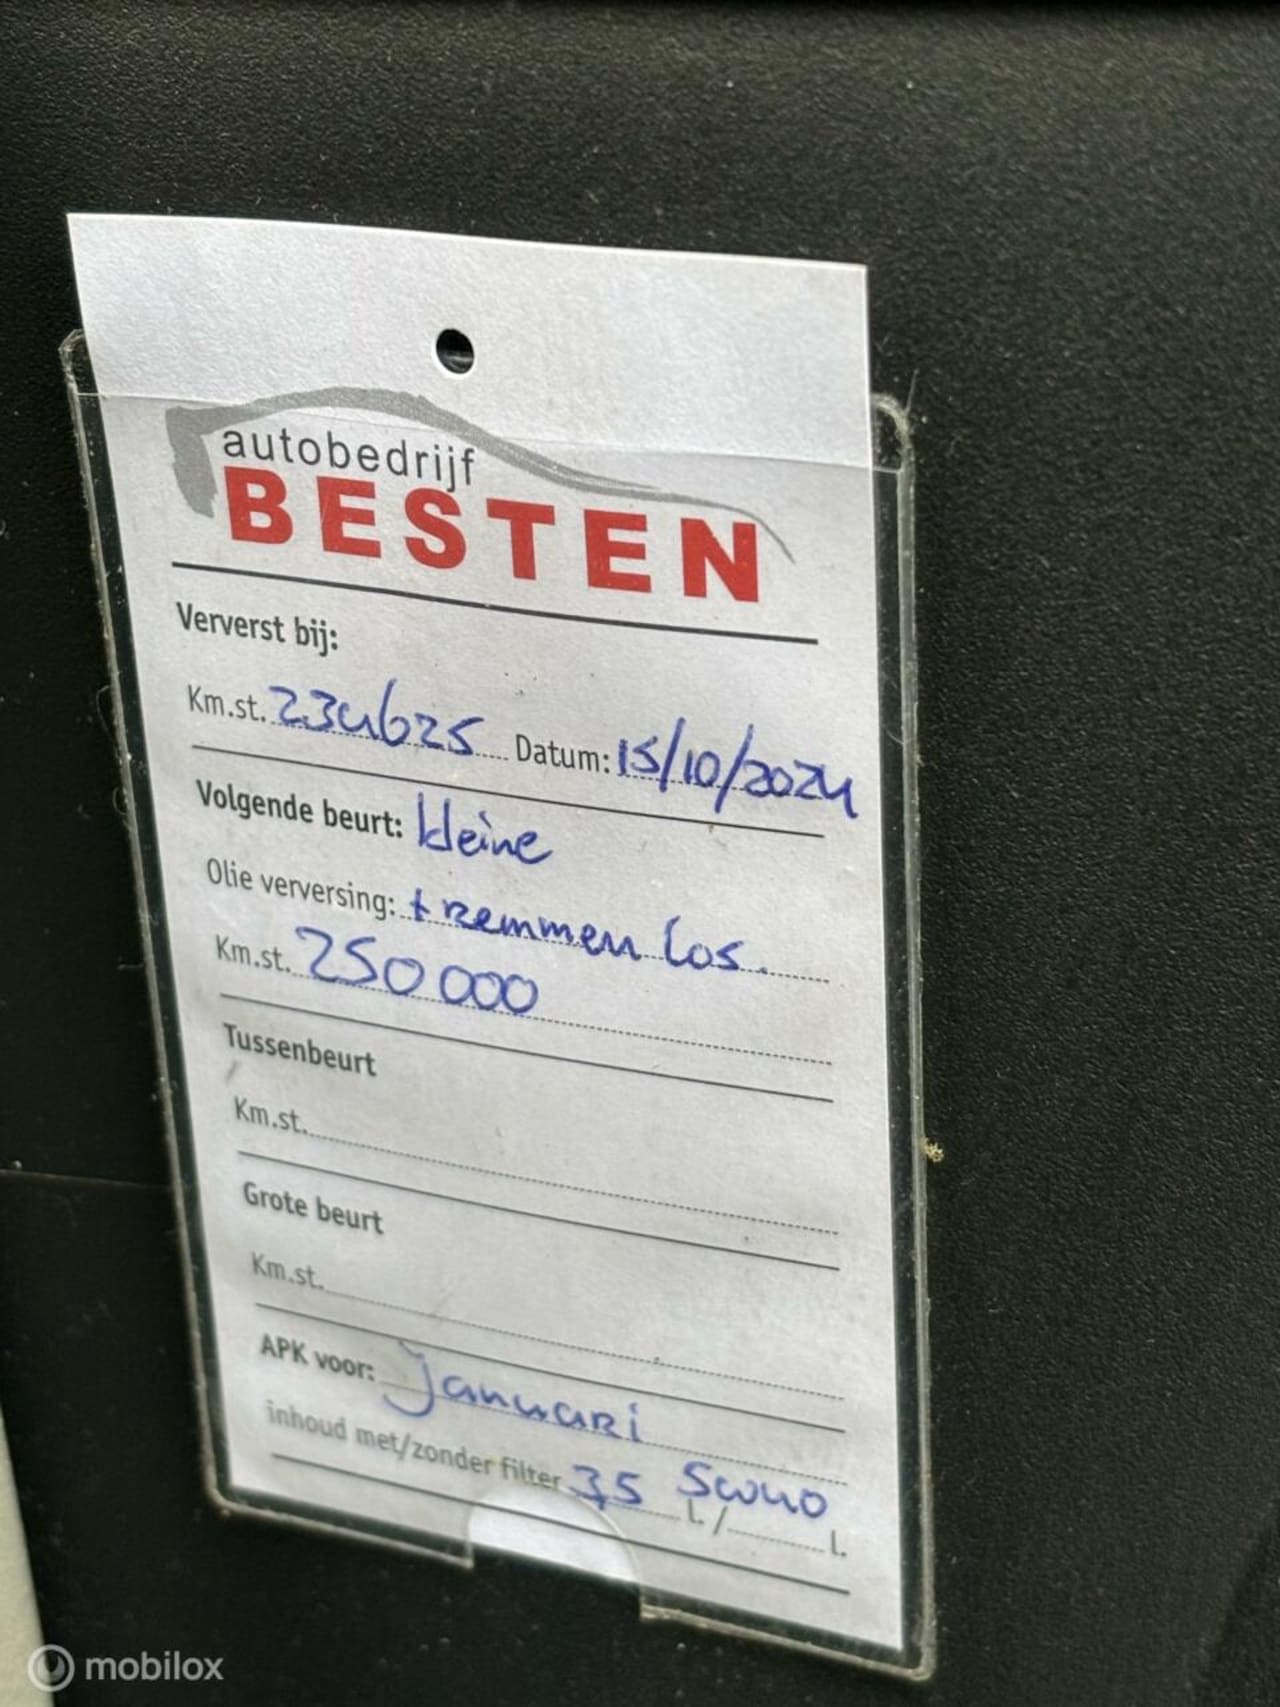 autobedrijf
BESTEN
Ververst bij:
Km.st. 234625 Datum: 15/10/2024
Volgende beurt: kleine
Olie verversing: + remmen los.
Km.st. 250 000
Tussenbeurt
Km.st.
Grote beurt
Km.st.
APK voor: Januari
inhoud met/zonder filter 3,5 l. / 5w40 l.
mobilox